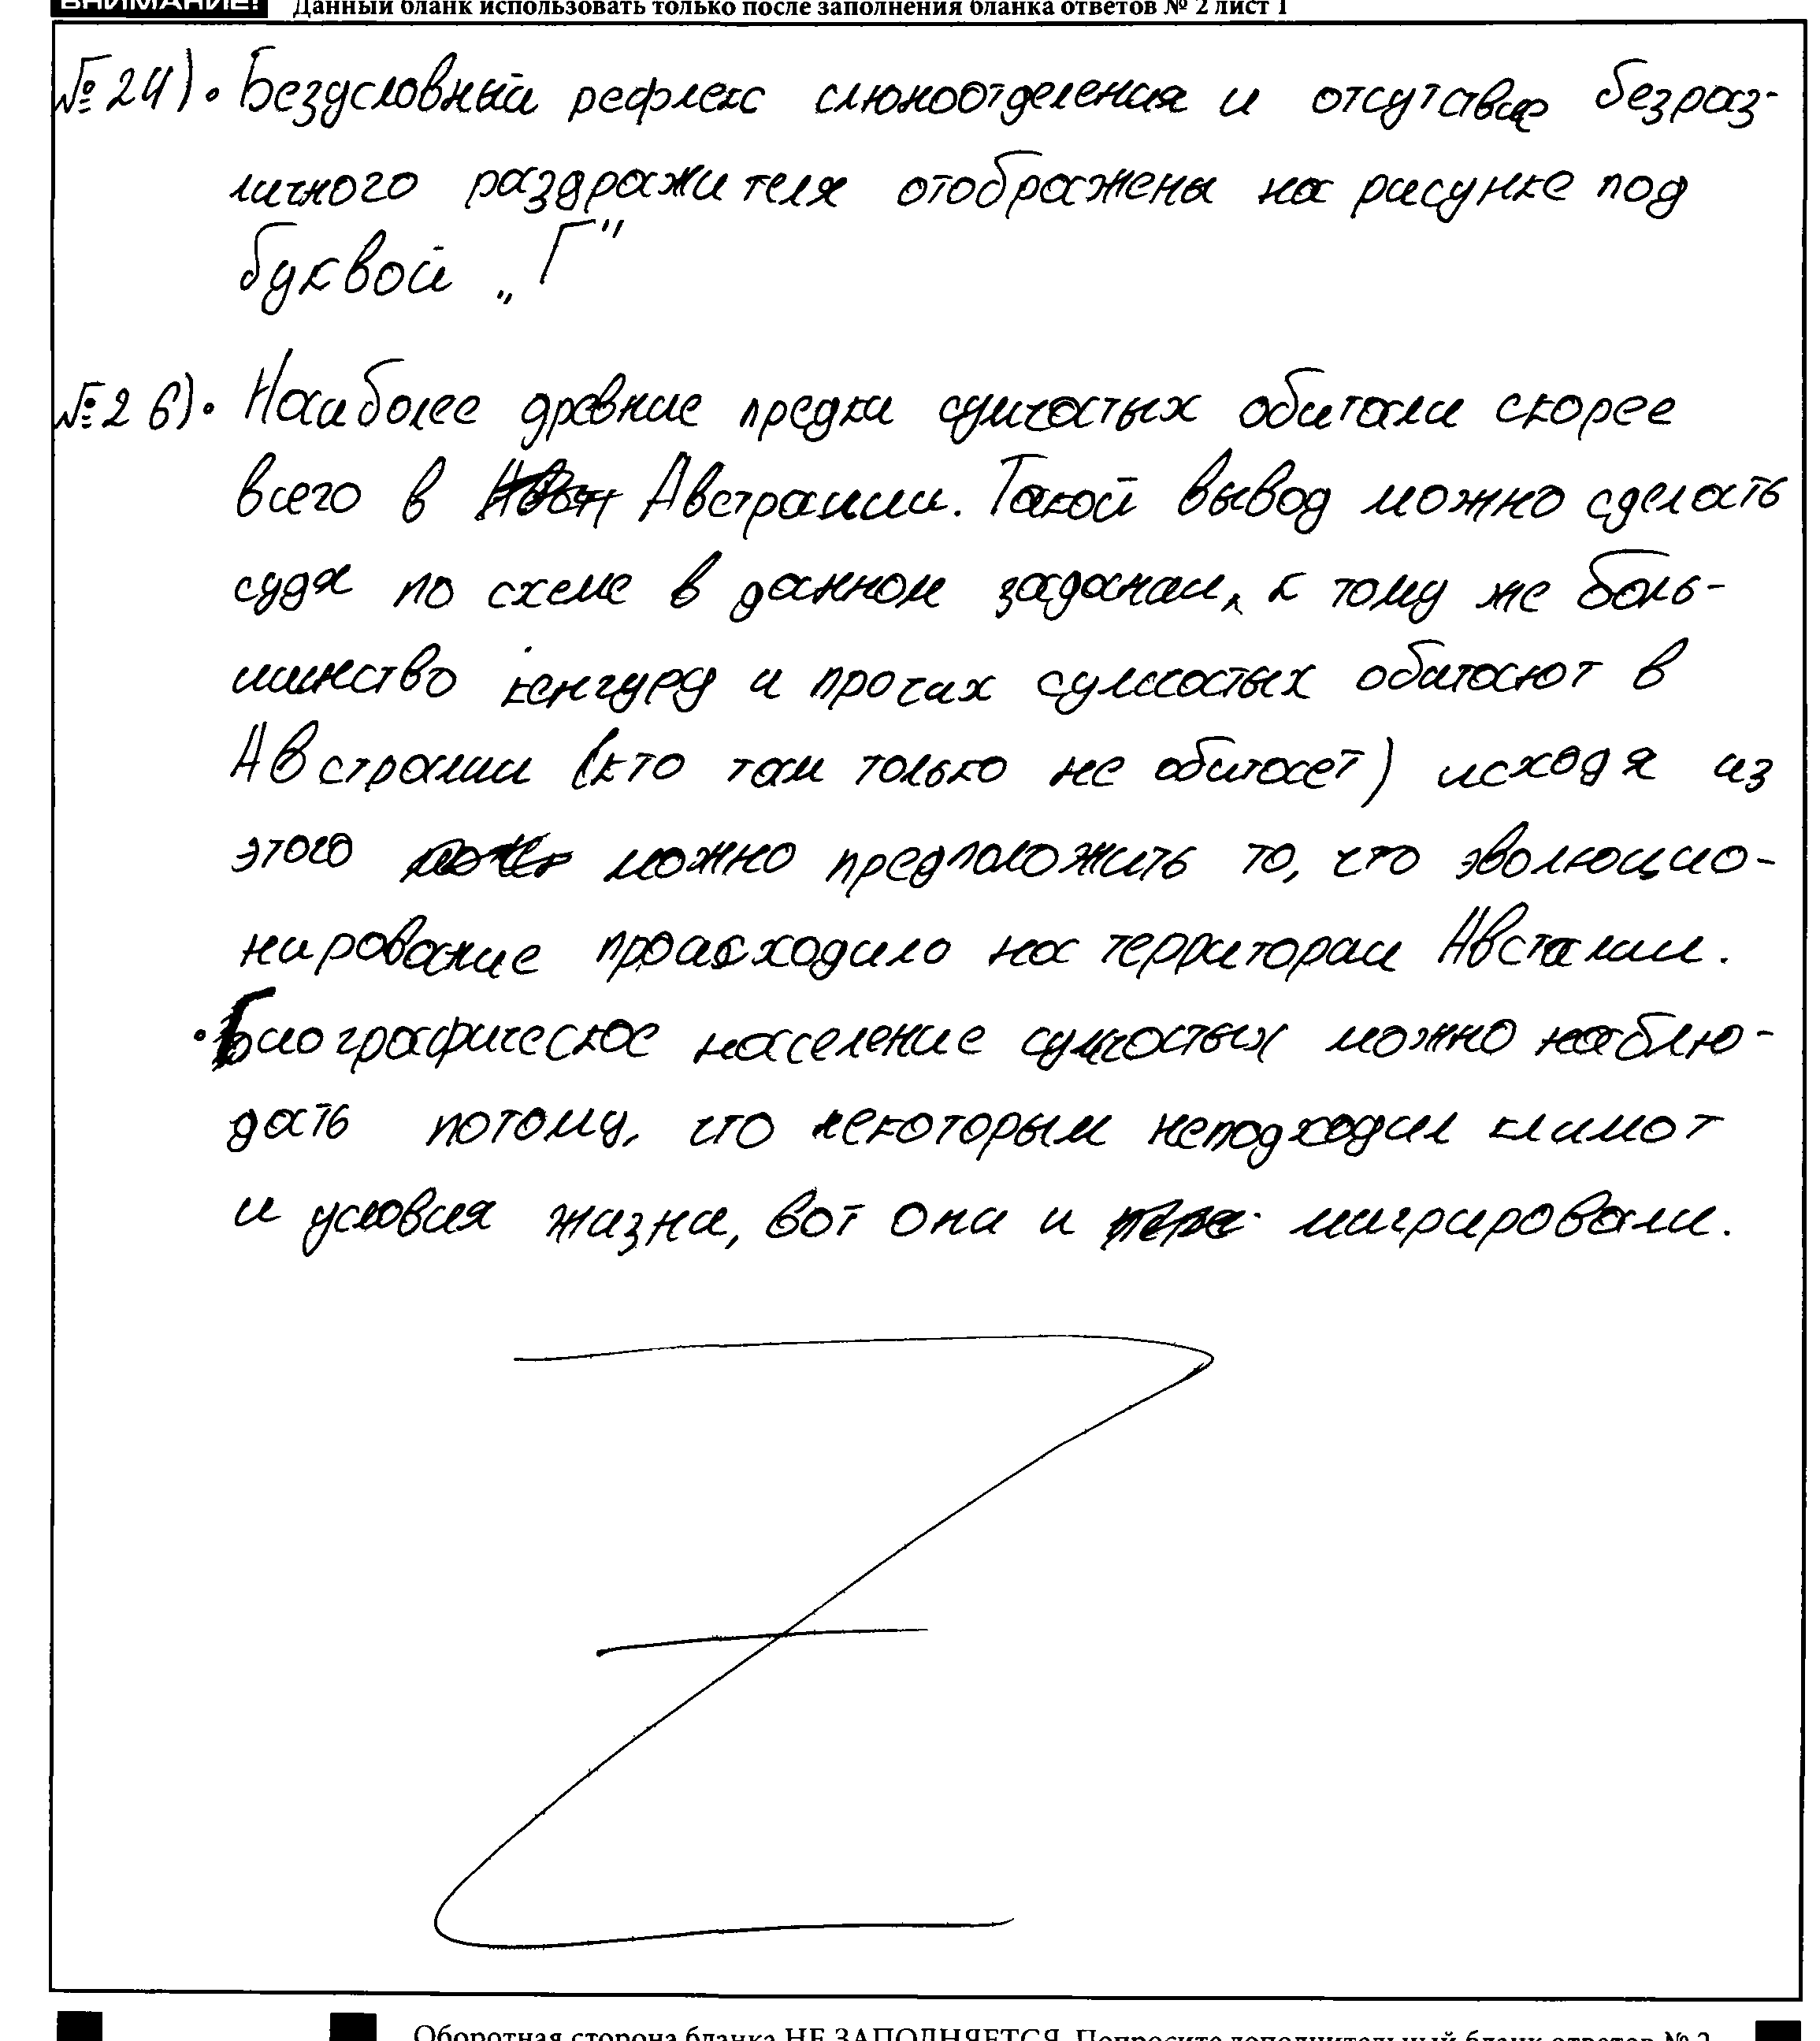 ВНИМАНИЕ! Данный бланк использовать только после заполнения бланка ответов № 2 лист 1
№24) • Безусловный рефлекс слюноотделения и отсутствие безраз-
личного раздражителя отображены на рисунке под
буквой „Г"
№26) • Наиболее древние предки сумчатых обитали скорее
всего в Австралии. Такой вывод можно сделать
судя по схеме в данном задании, к тому же боль-
шинство кенгуру и прочих сумчатых обитают в
Австралии (кто там только не обитает) исходя из
этого можно предположить то, что эволюцио-
нирование происходило на территории Австалии.
• Биографическое население сумчатых можно наблю-
дать потому, что некоторым неподходил климат
и условия жизни, вот они и мигрировали.
Оборотная сторона бланка НЕ ЗАПОЛНЯЕТСЯ. Попросите дополнительный бланк ответов № 2